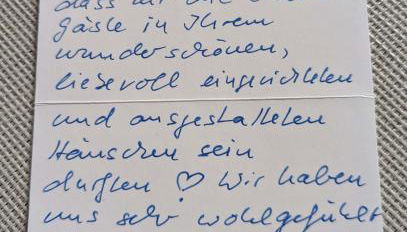 dass wir die
Gäste in Ihrem
wunderschönen,
liebevoll eingerichteten
und ausgestatteten
Häuschen sein
durften ♡ Wir haben
uns sehr wohlgefühlt